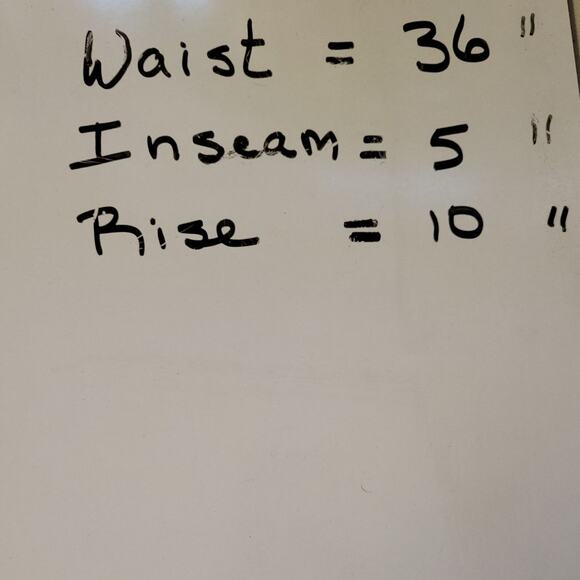 Waist = 36 "
Inseam = 5 "
Rise = 10 "